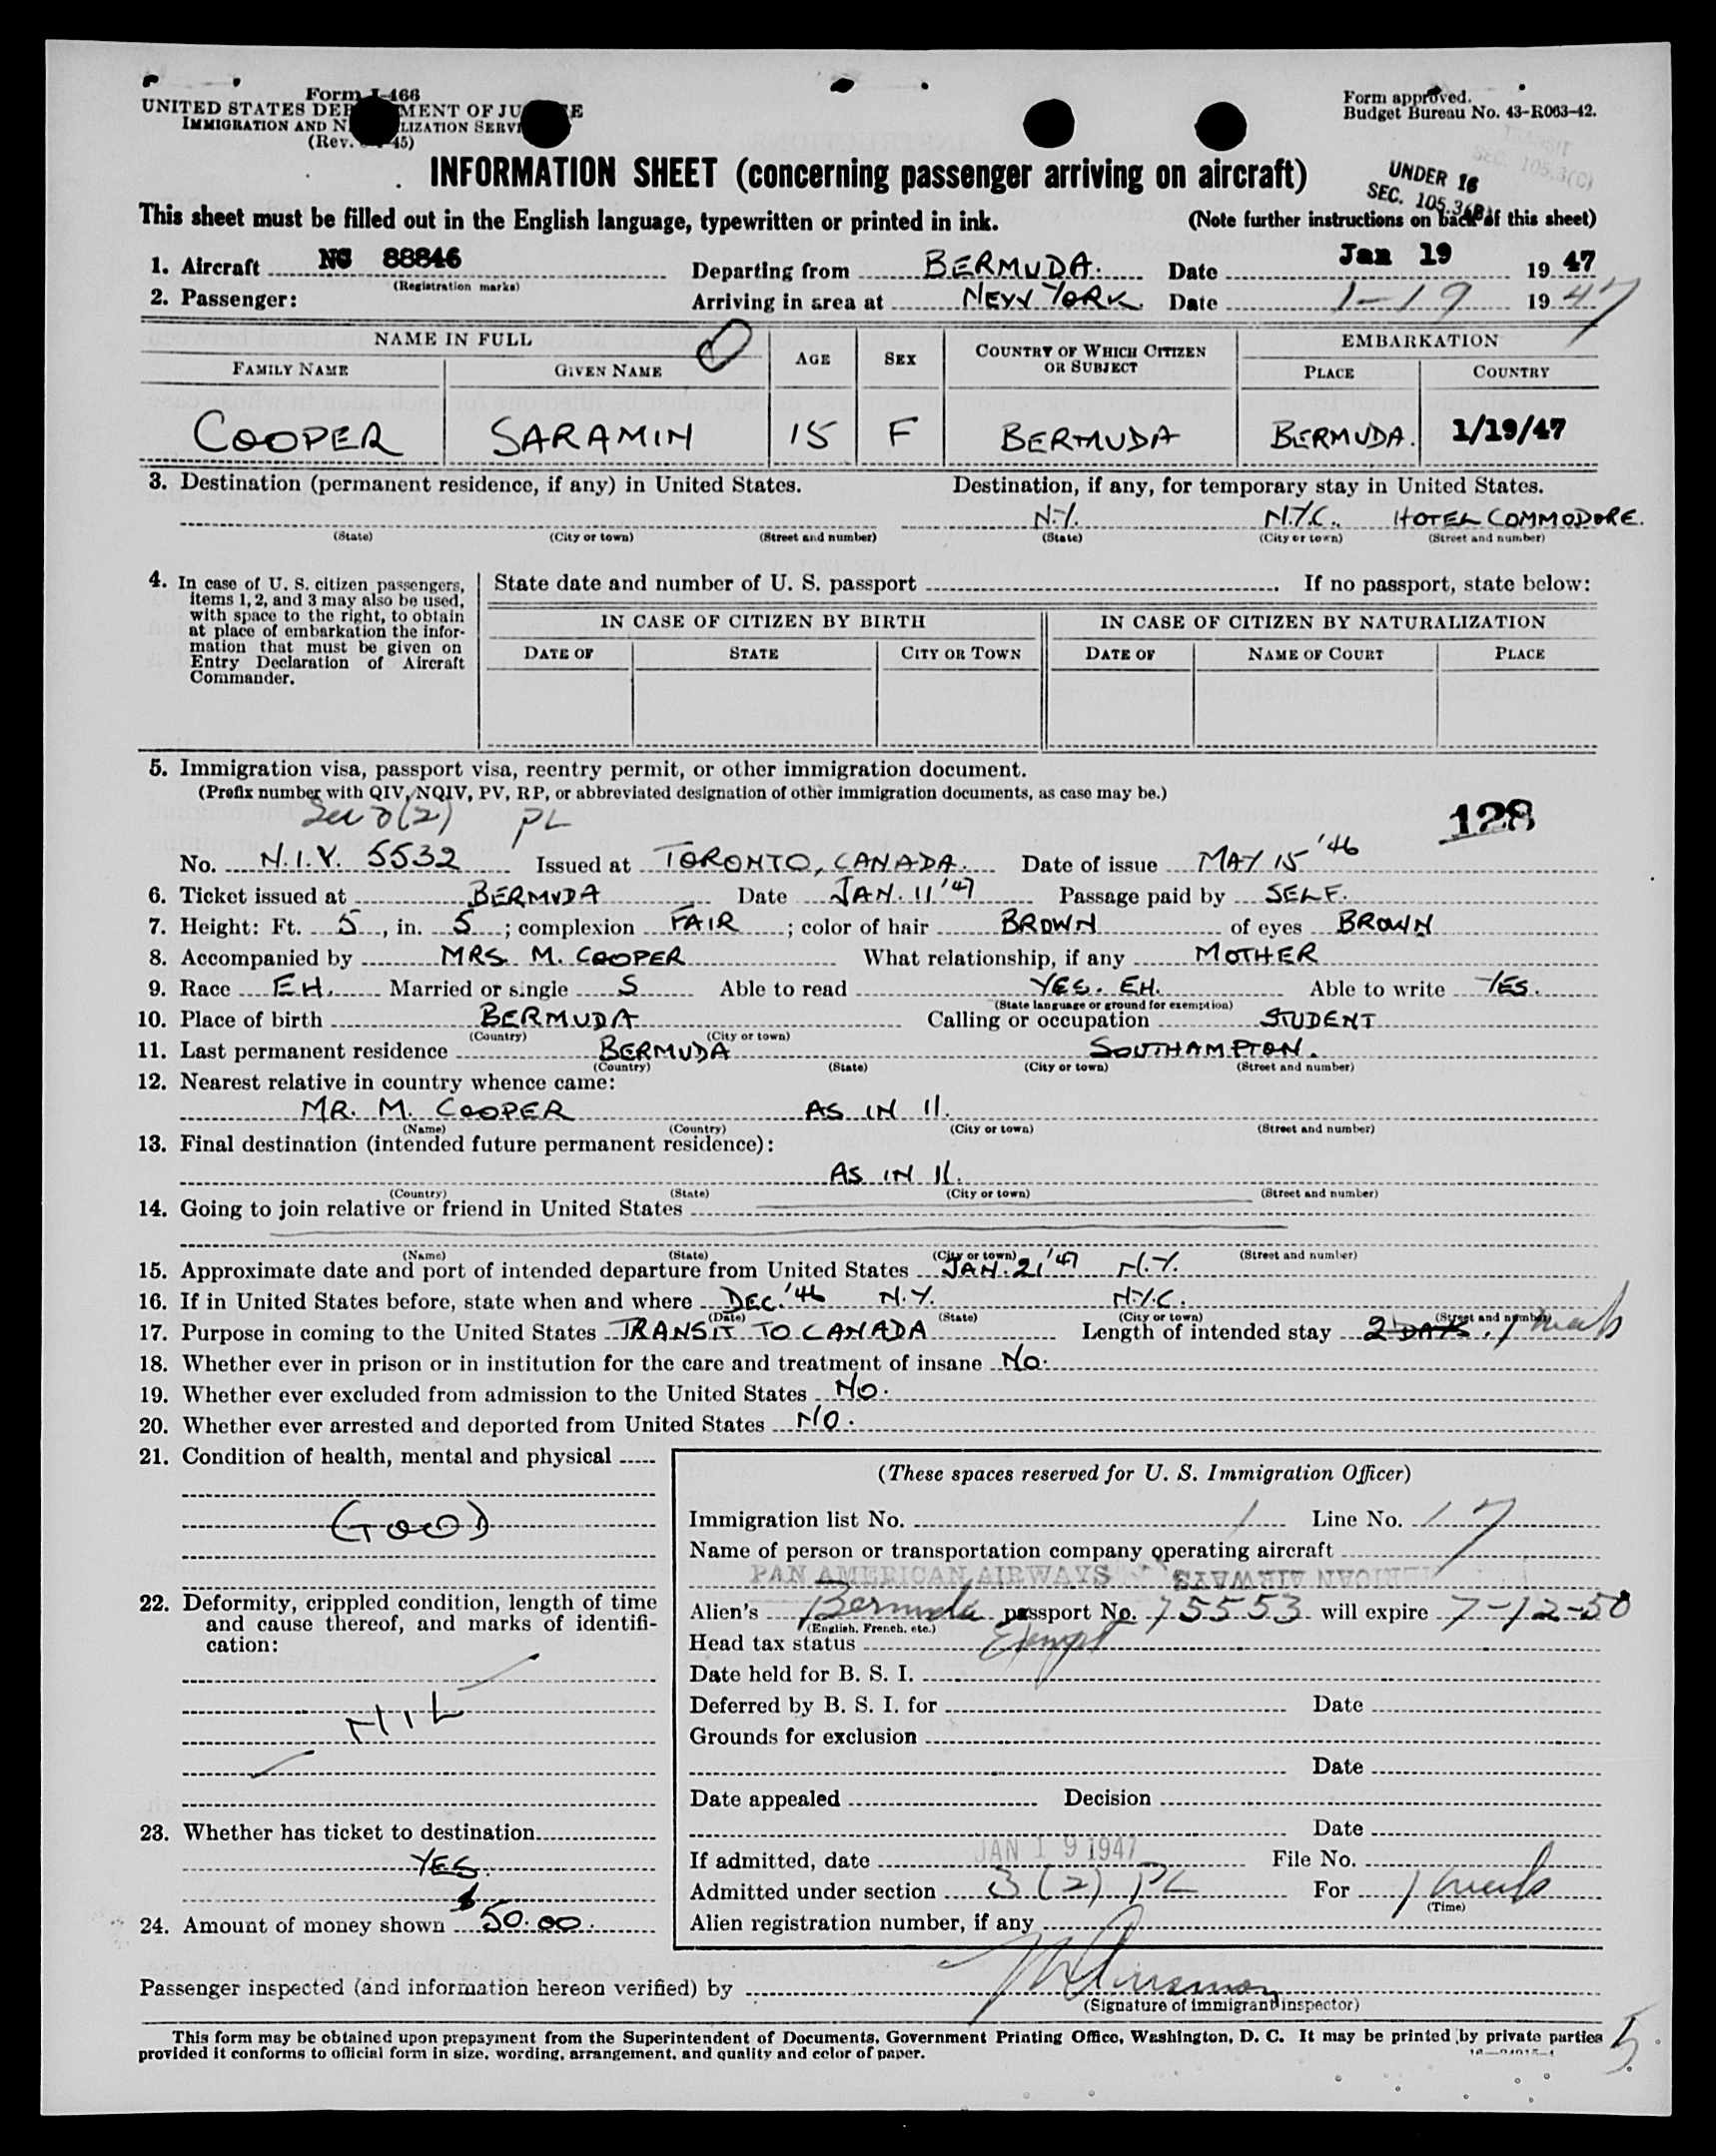 Form I-466
UNITED STATES DEP MENT OF JU E
IMMIGRATION AND N LIZATION SERVI
(Rev. 45)
Form approved.
Budget Bureau No. 43-R063-42.
INFORMATION SHEET (concerning passenger arriving on aircraft)
UNDER 16
SEC. 105.3(B)
SEC. 105.3(C)
This sheet must be filled out in the English language, typewritten or printed in ink. (Note further instructions on back of this sheet)
1. Aircraft NC 88846 Departing from BERMUDA. Date Jan 19 19 47
(Registration marks)
2. Passenger: Arriving in area at NEW YORK. Date 1-19 19 47
NAME IN FULL AGE SEX COUNTRY OF WHICH CITIZEN OR SUBJECT EMBARKATION
FAMILY NAME GIVEN NAME PLACE COUNTRY
COOPER SARAMIN 15 F BERMUDA BERMUDA. 1/19/47
3. Destination (permanent residence, if any) in United States. Destination, if any, for temporary stay in United States.
N.Y. N.Y.C. HOTEL COMMODORE.
(State) (City or town) (Street and number) (State) (City or town) (Street and number)
4. In case of U. S. citizen passengers, items 1, 2, and 3 may also be used, with space to the right, to obtain at place of embarkation the information that must be given on Entry Declaration of Aircraft Commander.
State date and number of U. S. passport If no passport, state below:
IN CASE OF CITIZEN BY BIRTH IN CASE OF CITIZEN BY NATURALIZATION
DATE OF STATE CITY OR TOWN DATE OF NAME OF COURT PLACE
5. Immigration visa, passport visa, reentry permit, or other immigration document.
(Prefix number with QIV, NQIV, PV, RP, or abbreviated designation of other immigration documents, as case may be.)
Sec 3(2) PL 128
No. N.I.V. 5532 Issued at TORONTO, CANADA. Date of issue MAY 15 '46
6. Ticket issued at BERMUDA Date JAN. 11 '47 Passage paid by SELF.
7. Height: Ft. 5, in. 5; complexion FAIR; color of hair BROWN of eyes BROWN
8. Accompanied by MRS. M. COOPER What relationship, if any MOTHER
9. Race EH. Married or single S Able to read YES. EH. Able to write YES.
(State language or ground for exemption)
10. Place of birth BERMUDA Calling or occupation STUDENT
(Country) (City or town)
11. Last permanent residence BERMUDA SOUTHAMPTON.
(Country) (State) (City or town) (Street and number)
12. Nearest relative in country whence came:
MR. M. COOPER AS IN 11.
(Name) (Country) (City or town) (Street and number)
13. Final destination (intended future permanent residence):
AS IN 11.
(Country) (State) (City or town) (Street and number)
14. Going to join relative or friend in United States
(Name) (State) (City or town) (Street and number)
15. Approximate date and port of intended departure from United States JAN. 21 '47 N.Y.
16. If in United States before, state when and where DEC. '46 N.Y. N.Y.C.
(Date) (State) (City or town) (Street and number)
17. Purpose in coming to the United States TRANSIT TO CANADA Length of intended stay 2 DAYS. 1 week
18. Whether ever in prison or in institution for the care and treatment of insane NO.
19. Whether ever excluded from admission to the United States NO.
20. Whether ever arrested and deported from United States NO.
21. Condition of health, mental and physical
GOOD
22. Deformity, crippled condition, length of time and cause thereof, and marks of identification:
NIL
23. Whether has ticket to destination
YES.
24. Amount of money shown $50.00.
(These spaces reserved for U. S. Immigration Officer)
Immigration list No. 1 Line No. 17
Name of person or transportation company operating aircraft
PAN AMERICAN AIRWAYS
Alien's Bermuda passport No. 15553 will expire 7-12-50
(English, French, etc.)
Head tax status Exempt
Date held for B. S. I.
Deferred by B. S. I. for Date
Grounds for exclusion
Date
Date appealed Decision
Date
If admitted, date JAN 19 1947 File No.
Admitted under section 3(2) PL For 1 week
(Time)
Alien registration number, if any
Passenger inspected (and information hereon verified) by
(Signature of immigrant inspector)
This form may be obtained upon prepayment from the Superintendent of Documents, Government Printing Office, Washington, D. C. It may be printed by private parties
provided it conforms to official form in size, wording, arrangement, and quality and color of paper.
5